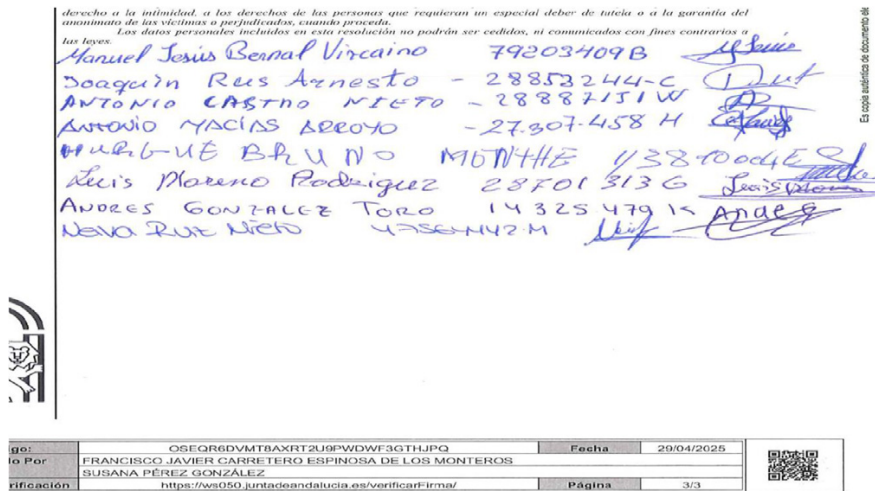 derecho a la intimidad, a los derechos de las personas que requieran un especial deber de tutela o a la garantía del
anonimato de las víctimas o perjudicados, cuando proceda.
Los datos personales incluidos en esta resolución no podrán ser cedidos, ni comunicados con fines contrarios a
las leyes.
Manuel Jesús Bernal Vizcaino 79203409B
Joaquín Rus Arnesto - 28853244-C
ANTONIO CASTRO NIETO - 28887151W
ANTONIO MACÍAS ARROYO - 27.307.458 H
BRUNO
Luis Moreno Rodriguez 28701313G
ANDRES GONZALEZ TORO 14325479K
RUIZ Nieto 47564442-M
Es copia auténtica de documento el
go: OSEQR6DVMT8AXRT2U9PWDWF3GTHJPQ Fecha 29/04/2025
do Por FRANCISCO JAVIER CARRETERO ESPINOSA DE LOS MONTEROS
SUSANA PÉREZ GONZÁLEZ
rificación https://ws050.juntadeandalucia.es/verificarFirma/ Página 3/3